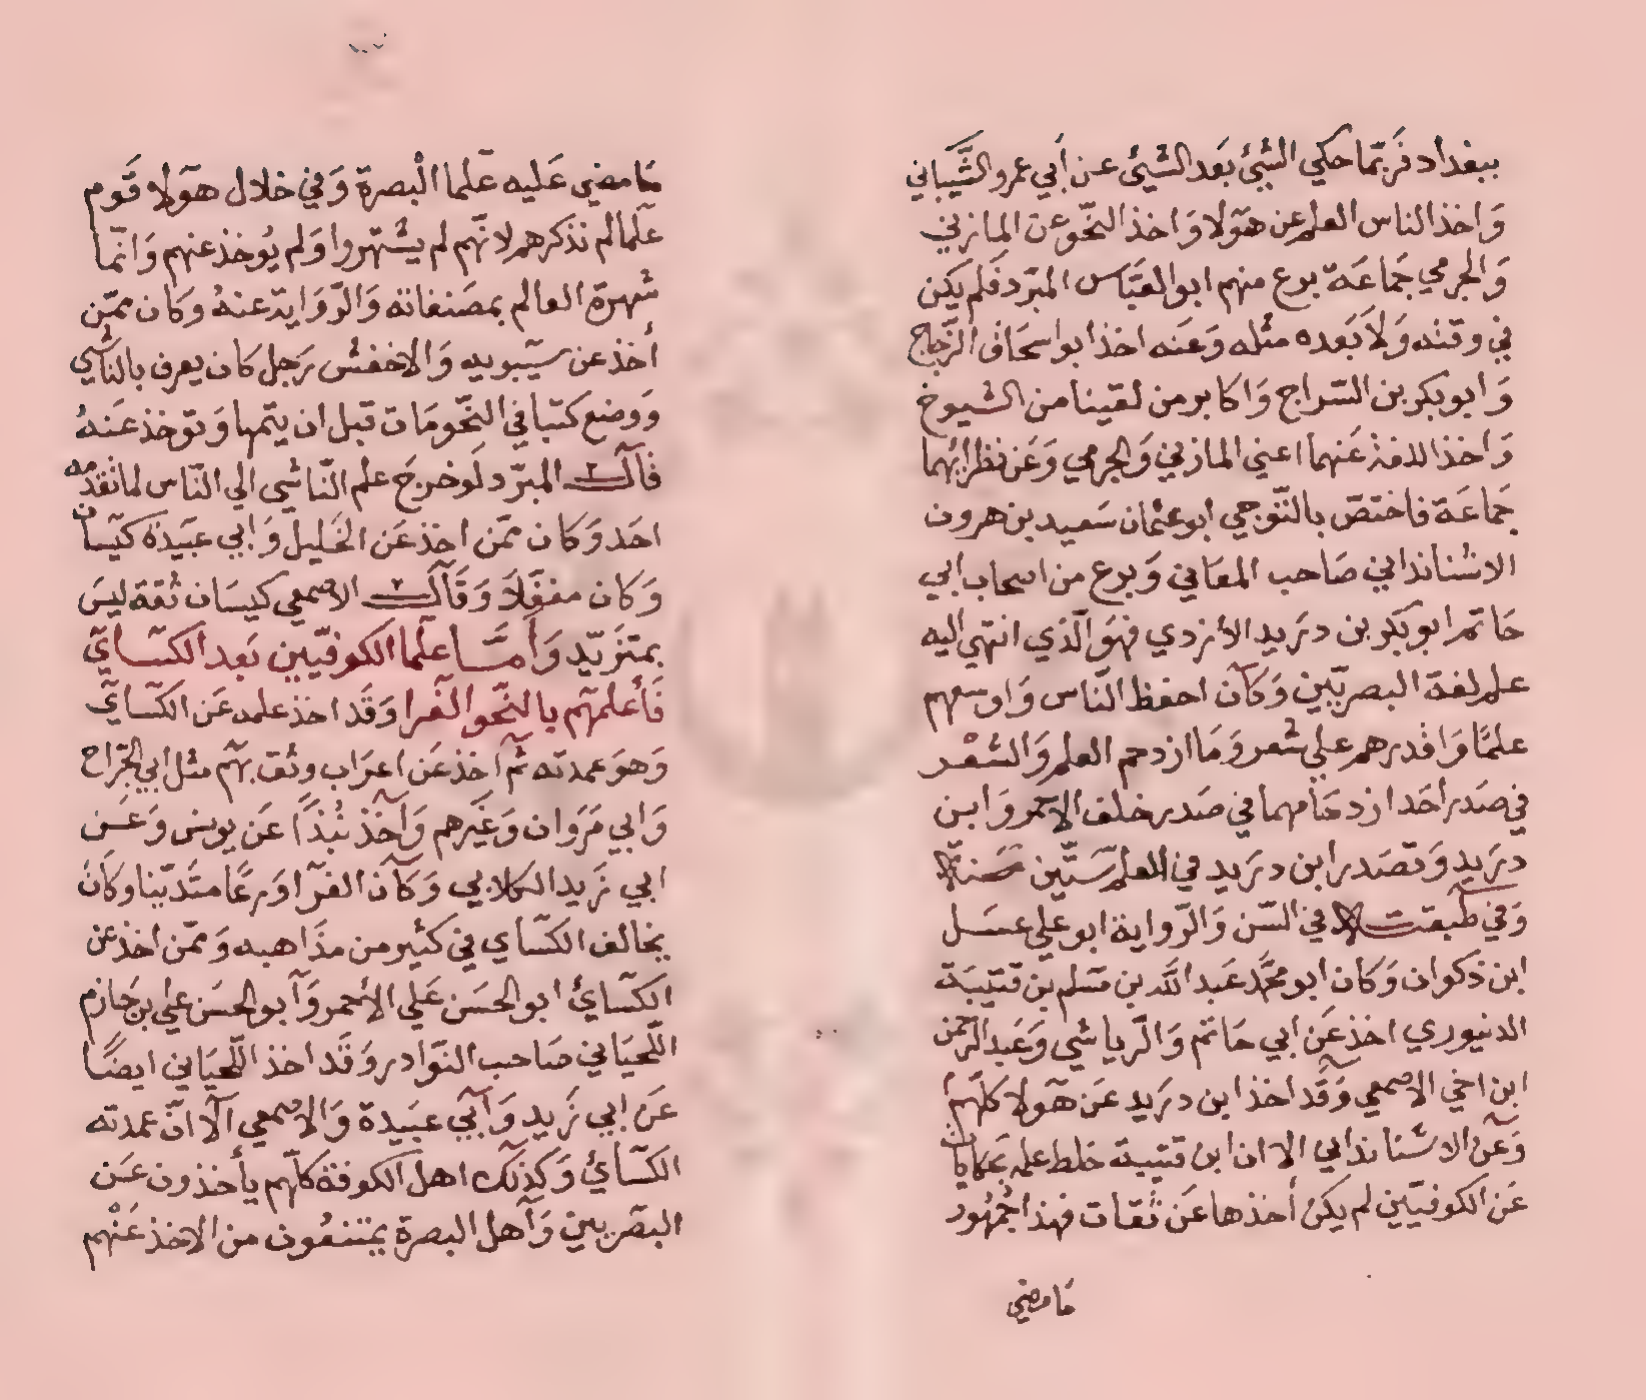 ببغداد فربما حكي الشئ بعد الشئ عن أبي عمرو الشيباني
واخذ الناس العلم عن هولا واخذ النحو عن المازني
والجرمي جماعة برع منهم ابو العباس المبرد فلم يكن
في وقته ولا بعده مثله وعنه اخذ ابو اسحاق الزجاج
وابو بكر بن السراج واكابر من لقينا من الشيوخ
واخذ اللغة عنهما اعني المازني والجرمي وعن نظرائهما
جماعة فاختص بالتوجي ابو عثمان سعيد بن هرون
الاشنانداني صاحب المعاني وبرع من اصحاب ابي
حاتم ابو بكر بن دريد الأزدي فهو الذي انتهي اليه
علم لغة البصريين وكان احفظ الناس واوسعهم
علما واقدرهم علي شعر وما ازدحم العلم والشعر
في صدر احد ازدحامهما في صدر خلف الاحمر وابن
دريد وتصدر ابن دريد في العلم ستين سنة
وفي طبقته في السن والرواية ابو علي عسل
ابن ذكوان وكان ابو محمد عبد الله بن مسلم بن قتيبة
الدنيوري اخذ عن ابي حاتم والرياشي وعبد الرحمن
ابن اخي الاصمعي وقد اخذ ابن دريد عن هولا كلهم
وعن الاشنانداني الا ان ابن قتيبة خلط علمه بحكايات
عن الكوفيين لم يكن أخذها عن ثقات فهذا جمهور
ما مضي
ما مضي عليه علما البصرة وفي خلال هولا قوم
علما لم نذكرهم لانهم لم يشتهروا ولم يوخذ عنهم وانما
شهرة العالم بمصنفاته والرواية عنه وكان ممن
أخذ عن سيبويه والاخفش رجل كان يعرف بالناشي
ووضع كتبا في النحو مات قبل ان يتمها وتوخذ عنه
قال المبرد لو خرج علم الناشي الي الناس لما تقدمه
احد وكان ممن اخذ عن الخليل وابي عبيدة كيسان
وكان مغفلا وقال الاصمعي كيسان ثقة ليس
بمتزيد وأما علما الكوفيين بعد الكساي
فأعلمهم بالنحو الفرا وقد اخذ علمه عن الكساي
وهو عمدته ثم اخذ عن اعراب وثق بهم مثل ابي الجراح
وابي مروان وغيرهم واخذ نبذا عن يونس وعن
ابي زيد الكلابي وكان الفرا ورعا متدينا وكان
يخالف الكساي في كثير من مذاهبه وممن اخذ عن
الكسائ ابو الحسن علي الأحمر وأبو الحسن علي بن حازم
اللحياني صاحب النوادر وقد اخذ اللحياني ايضا
عن ابي زيد وابي عبيدة والاصمعي الا ان عمدته
الكسائ وكذلك اهل الكوفة كلهم يأخذون عن
البصريين وأهل البصرة يمتنعون من الاخذ عنهم